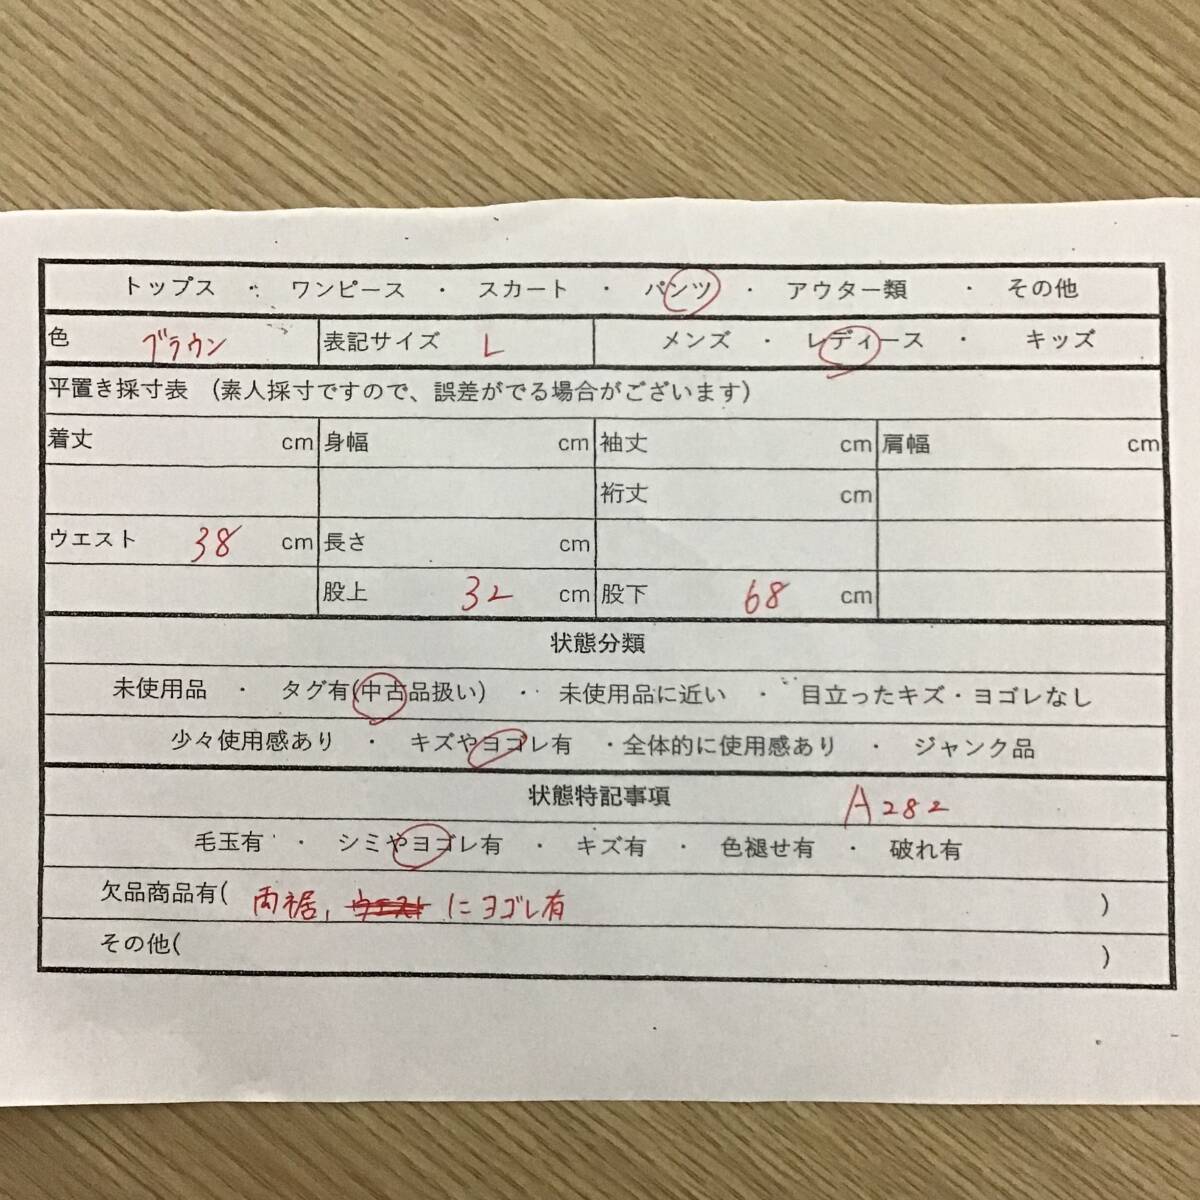 トップス ・ ワンピース ・ スカート ・ パンツ ・ アウター類 ・ その他
色 ブラウン 表記サイズ L メンズ ・ レディース ・ キッズ
平置き採寸表 (素人採寸ですので、誤差がでる場合がございます)
着丈 cm 身幅 cm 袖丈 cm 肩幅 cm
裄丈 cm
ウエスト 38 cm 長さ cm
股上 32 cm 股下 68 cm
状態分類
未使用品 ・ タグ有(中古品扱い) ・ 未使用品に近い ・ 目立ったキズ・ヨゴレなし
少々使用感あり ・ キズやヨゴレ有 ・全体的に使用感あり ・ ジャンク品
状態特記事項 A282
毛玉有 ・ シミやヨゴレ有 ・ キズ有 ・ 色褪せ有 ・ 破れ有
欠品商品有( 両裾, ウエスト にヨゴレ有 )
その他( )